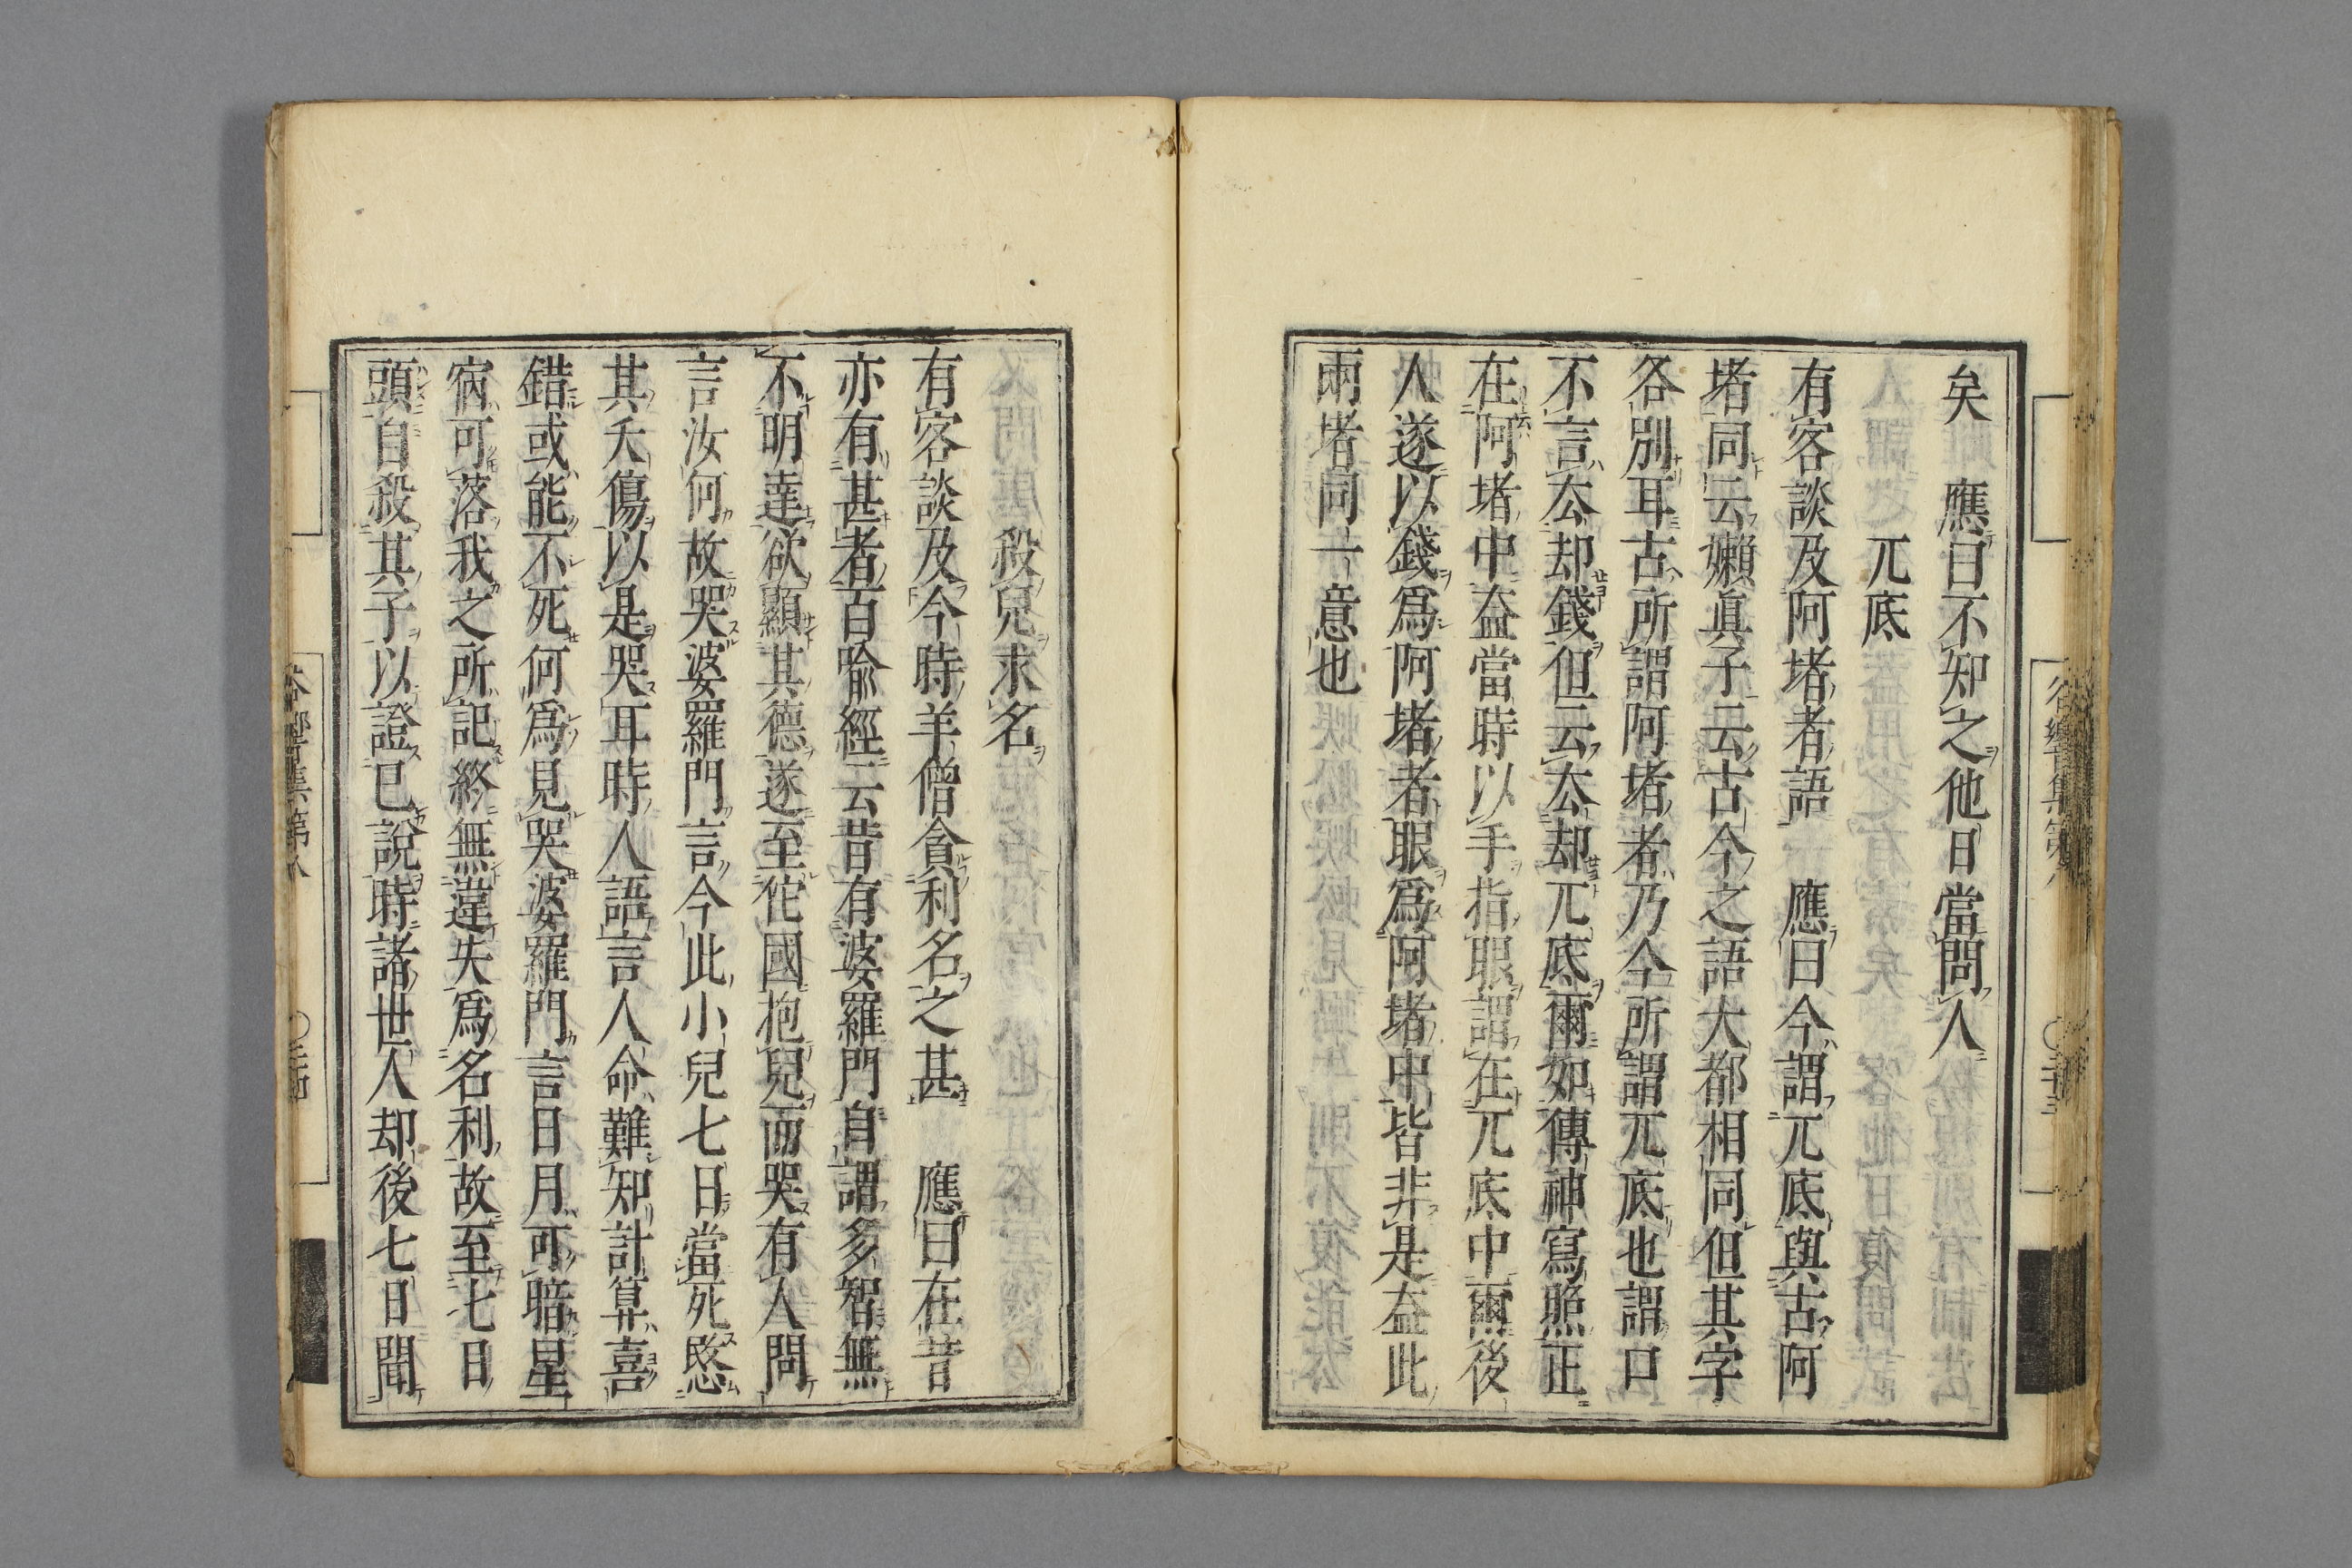 矣　應曰不知之他日當問人
兀底
有客談及阿堵者語　應曰今謂兀底與古阿
堵同云嬾眞子云古今之語大都相同但其字
各別耳古所謂阿堵者乃今所謂兀底也謂口
不言去却錢但云去却兀底爾如傳神寫照正
在阿堵中葢當時以手指眼謂在兀底中爾後
人遂以錢爲阿堵者眼爲阿堵中皆非是葢此
兩堵同一意也
殺兒求名
有客談及今時羊僧貪利名之甚　應曰在昔
亦有甚者百喩經云昔有婆羅門自謂多智無
不明達欲顯其德遂至佗國抱兒而哭有人問
言汝何故哭婆羅門言今此小兒七日當死愍
其夭傷以是哭耳時人語言人命難知計算喜
錯或能不死何爲見哭婆羅門言日月可暗星
宿可落我之所記終無違失爲名利故至七日
頭自殺其子以證已說時諸世人却後七日聞
谷響集第八